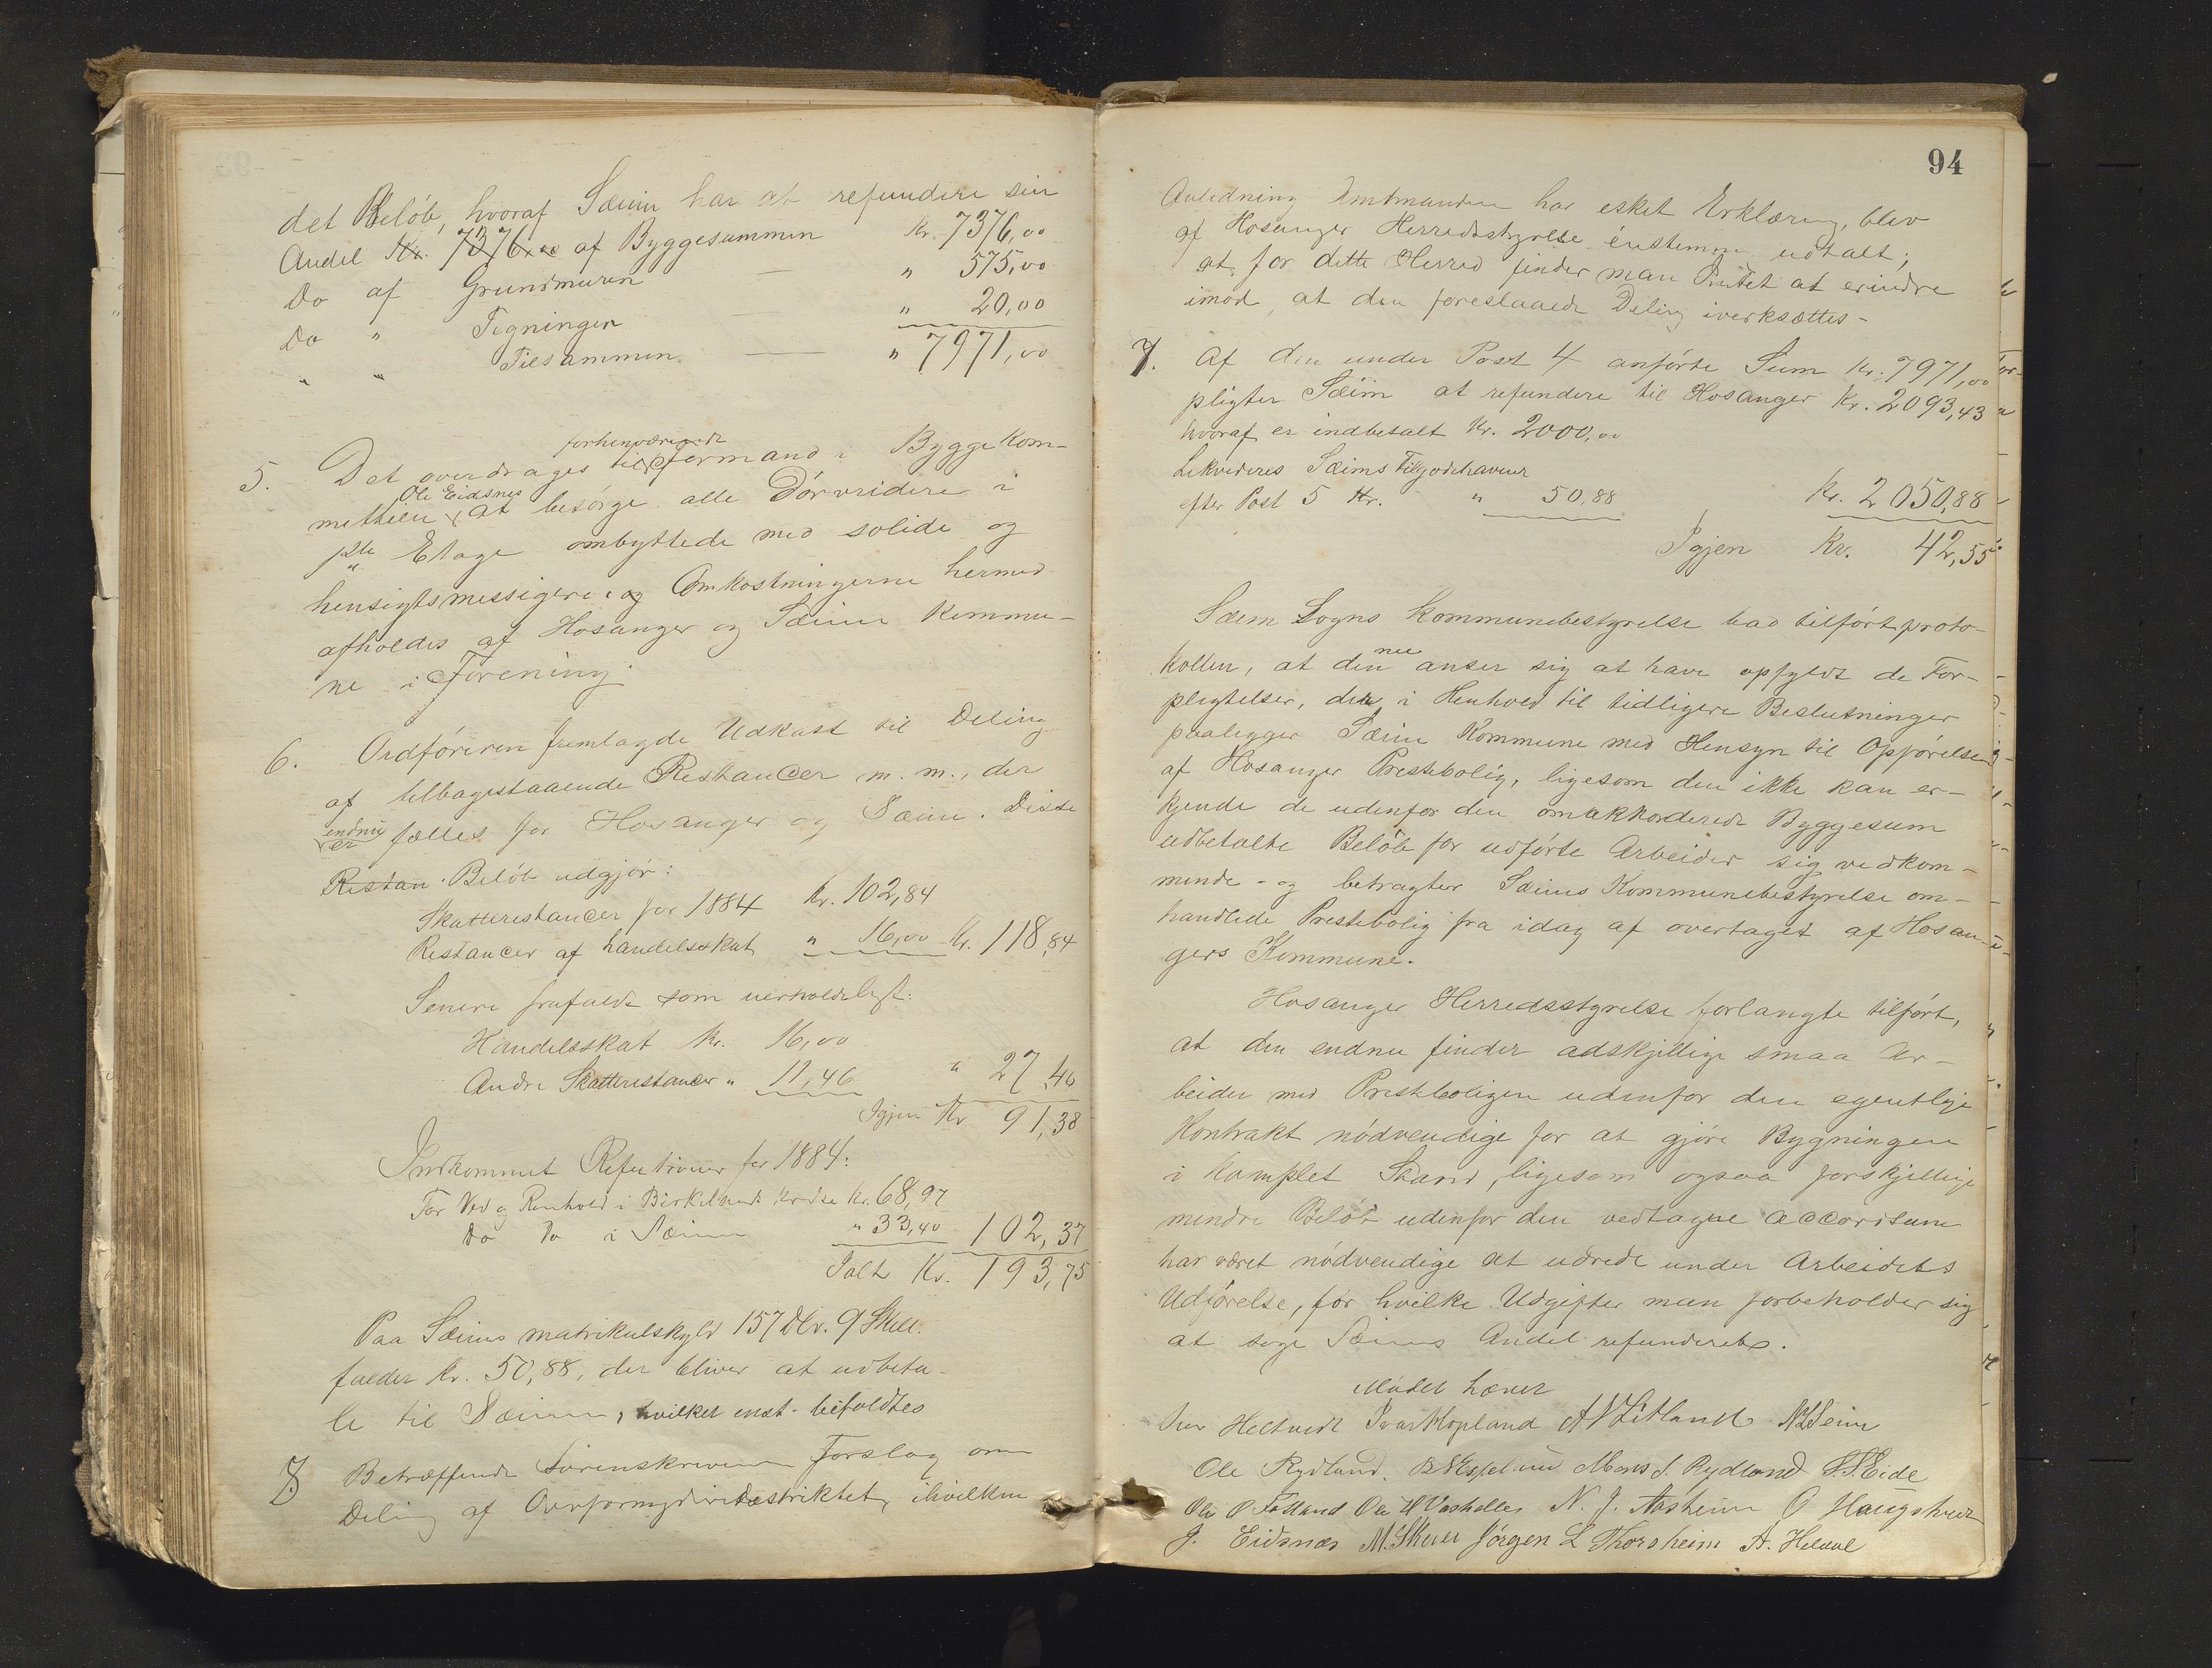 det Beløb, hvoraf Sæim har at refundere sin
Andel Kr. 7376,00 af Byggesummen Kr. 7376,00
Do af Grundmuren — " 575,00
Do " Tegninger — " 20,00
" " Tilsammen — " 7971,00
5. Det overdrages til forhenværende Formand i Byggekom-
mitheen Ole Eidsnes at besørge alle Dørvridere i
1ste Etage ombyttede med solide og
hensigtsmessigere og Omkostningerne hermed
afholdes af Hosanger og Sæim Kommu-
ne i Forening.
6. Ordføreren fremlagde Udkast til Deling
af tilbagestaaende Restancer m. m., der
endnu er fælles for Hosanger og Sæim. Disse
Restan. Beløb udgjør:
Skatterestancer for 1884 Kr. 102,84
Restancer af handelsskat " 16,00 Kr. 118,84
Senere frafaldt som uerholdeligt:
Handelsskat Kr. 16,00
Andre Skatterestancer " 11,46 " 27,46
Igjen Kr 91,38
Indkommet Refusioner for 1884:
For Ved og Renhold i Birkelands Kredse Kr. 68,97
Do Do i Sæim " 33,40 102,37
Ialt Kr. 193,75
Paa Sæims matrikulskyld 157 Dlr. 9 Skill.
falder Kr. 50,88, der bliver at udbeta-
le til Sæim, hvilket enst. bifaldtes
7. Betræffende Sorenskriverens Forslag om
Deling af Overformynderidistriktet, i hvilken
94
Anledning Amtmanden har æsket Erklæring, blev
af Hosanger Herredsstyrelse enstemmig udtalt;
at for dette Herred finder man Intet at erindre
imod, at den foreslaaede Deling iverksættes-
7. Af den under Post 4 anførte Sum Kr. 7971,00 for-
pligter Sæim at refundere til Hosanger Kr. 2093,43
hvoraf er indbetalt Kr. 2000,00
Likvideres Sæims Tilgodehavende
efter Post 5 Kr. " 50,88 Kr. 2050,88
Igjen Kr. 42,55
Sæim Sogns Kommunebestyrelse bad tilført proto-
kollen, at den nu anser sig at have opfyldt de For-
pligtelser, der i Henhold til tidligere Beslutninger
paaligger Sæim Kommune med Hensyn til Opførelsen
af Hosanger Prestebolig, ligesom den ikke kan er-
kjende de udenfor den omakkorderede Byggesum
udbetalte Beløb for udførte Arbeider sig vedkom-
mende - og betragter Sæims Kommunebestyrelse om-
handlede Prestebolig fra idag af overtaget af Hosan-
gers Kommune.
Hosanger Herredsstyrelse forlangte tilført,
at den endnu finder adskjellige smaa Ar-
beider med Presteboligen udenfor den egentlige
Kontrakt nødvendige for at gjøre Bygningen
i komplet Stand, ligesom ogsaa forskjellige
mindre Beløb udenfor den vedtagne accordsum
har været nødvendige at udrede under Arbeidets
Udførelse, for hvilke Udgifter man forbeholder sig
at søge Sæims Andel refunderet.
Mødet hævet
Iver Heltvedt Ivar Hopland A N Litland N L Seim
Ole Rydland. Mons J. Rydland S. S. Eide
Ole O Fotland N. J. Aasheim O Haugstvedt
J. Eidsnæs M. Skeier Jørgen L Thorsheim A. Helland